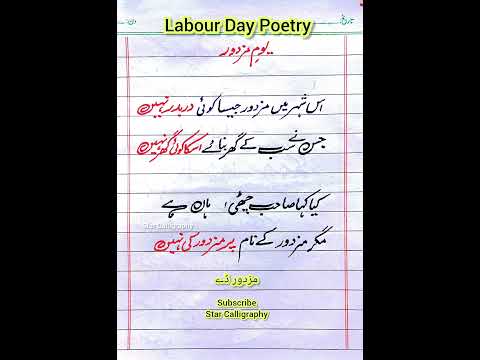 Labour Day Poetry
تاریخ
دن
یومِ مزدور
اس شہر میں مزدور جیسا کوئی دربدر نہیں
جس نے سب کے گھر بنائے اسکا کوئی گھر نہیں
کیا کہا صاحب چھٹی! ہاں ہے
Star Calligraphy
مگر مزدور کے نام پر مزدور کی نہیں
مزدور ڈے
Subscribe
Star Calligraphy